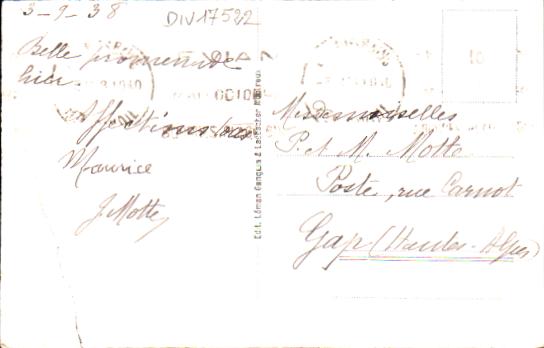 3-9-38
DIV17522
Belle promenade
hier.
Affections
Maurice
J. Motte
Edit. Léman
Mesdemoiselles
P. et M. Motte
Poste, rue Carnot
Gap (Hautes-Alpes)